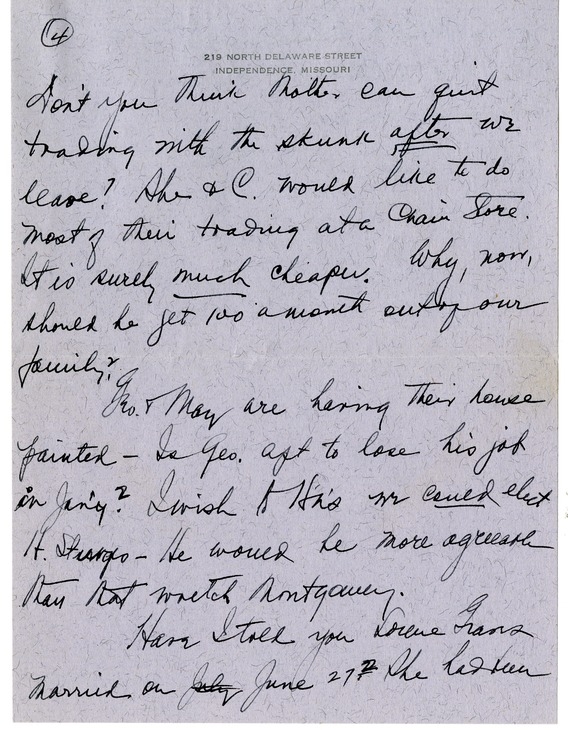 4
219 NORTH DELAWARE STREET
INDEPENDENCE, MISSOURI
Don't you think Mother can quit
trading with the skunk after we
leave? She & C. would like to do
most of their trading at a Chain Store.
It is surely much cheaper. Why, now,
should he get 100 a month out of our
family?
Geo. & May are having their house
painted - Is Geo. apt to lose his job
in Jan'y? I wish to we could elect
H. - He would be more agreeable
than that wretch Montgomery.
Have I told you Lorene
married on July June 27 She had been